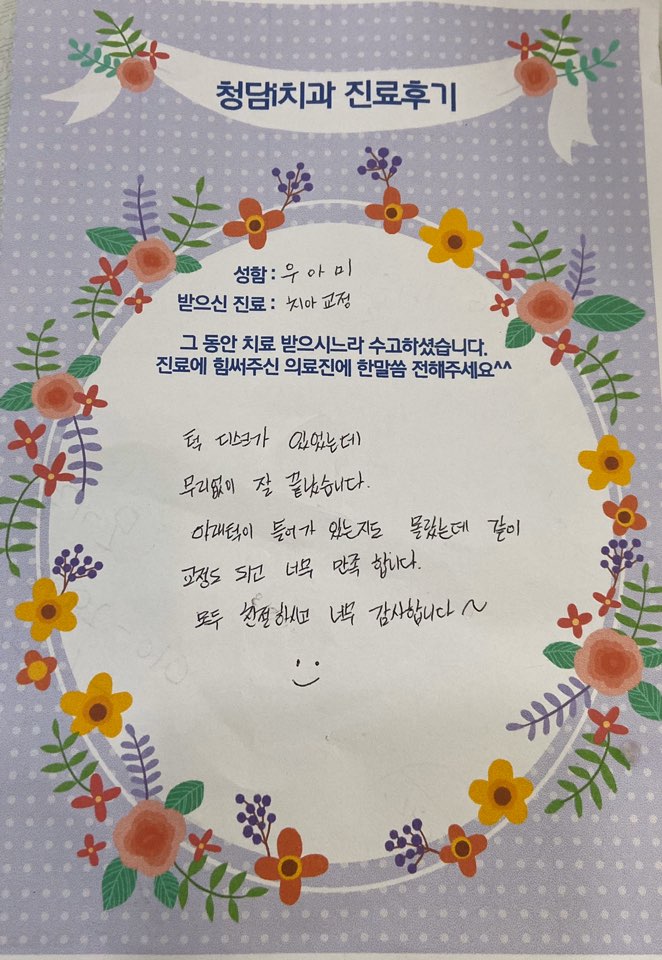 청담i치과 진료후기
성함 : 우아미
받으신 진료 : 치아교정
그 동안 치료 받으시느라 수고하셨습니다.
진료에 힘써주신 의료진에 한말씀 전해주세요^^
턱 디스크가 있었는데
무리없이 잘 끝났습니다.
아래턱이 들어가 있는지도 몰랐는데 같이
교정도 되고 너무 만족 합니다.
모두 친절하시고 너무 감사합니다~